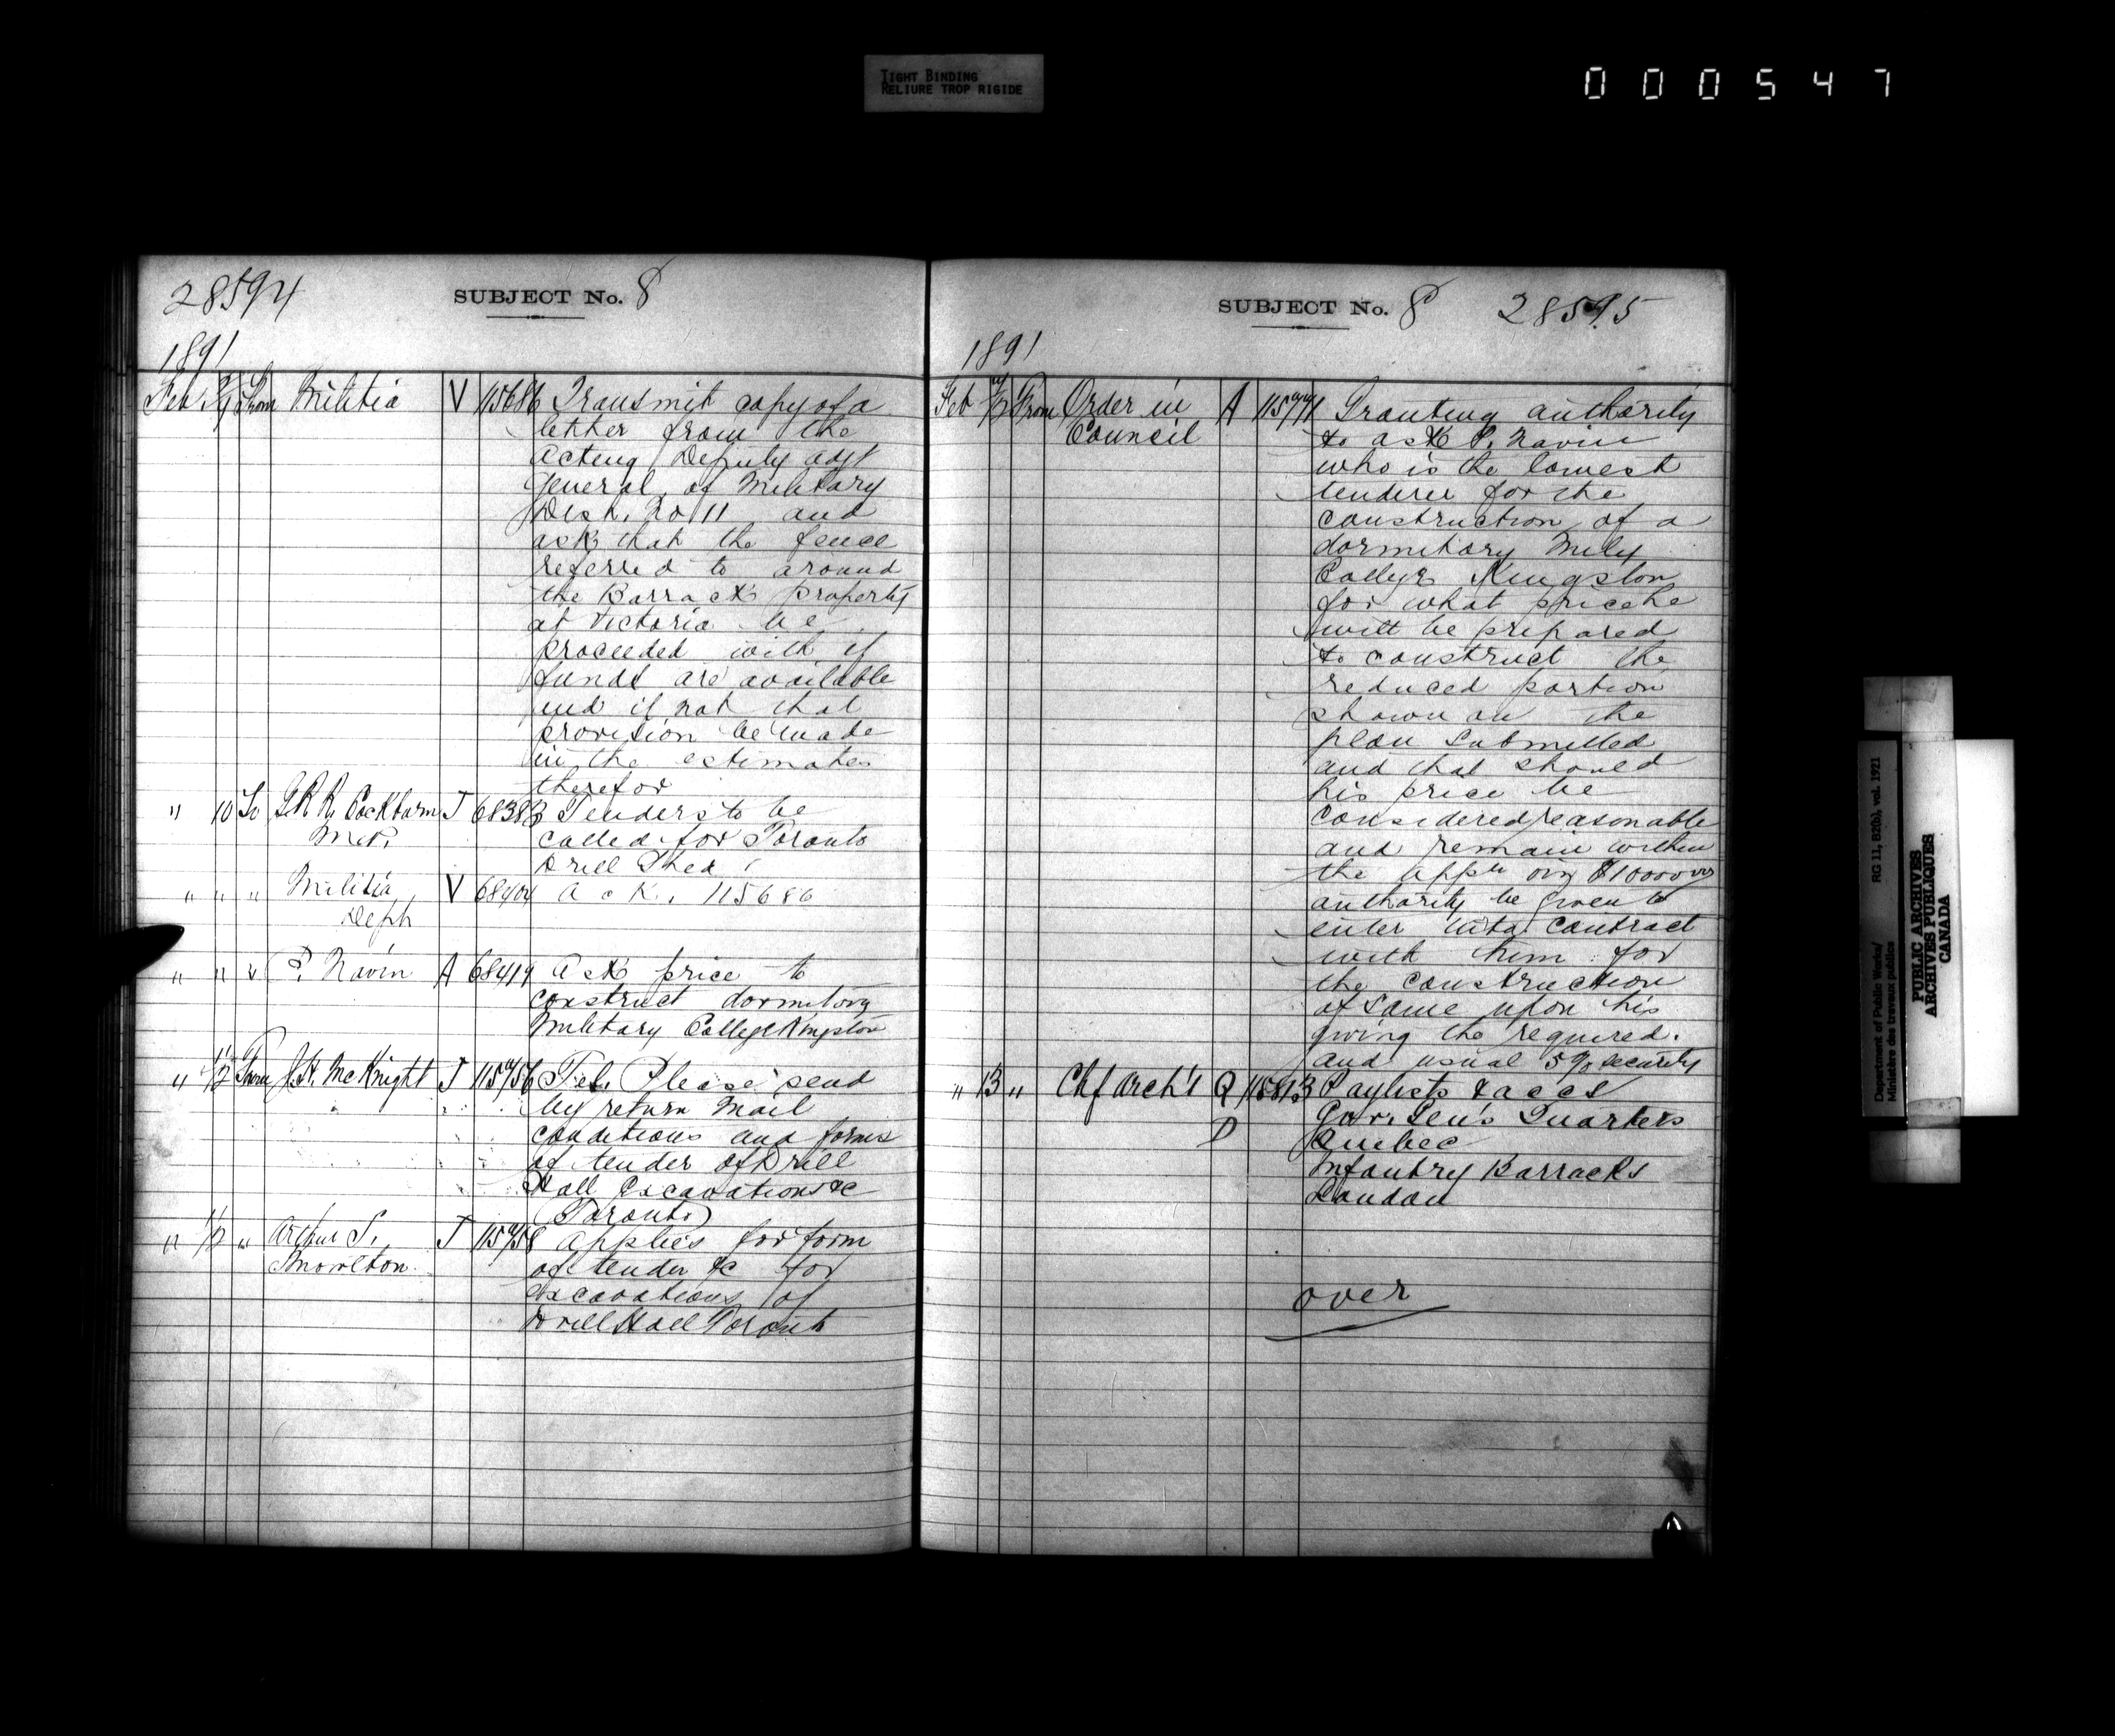 TIGHT BINDING
RELIURE TROP RIGIDE
000547
28594
SUBJECT No. 8
1891
Feb From Militia V 115686 Transmit copy of a
letter from the
Acting Deputy Adjt
General of Military
Dist. No 11 and
ask that the fence
referred to around
the Barrack property
at Victoria be
proceeded with if
funds are available
and if not that
provision be made
in the estimates
therefor
" 10 To G.R.R. Cockburn J 68383 Tenders to be
M.P. called for Toronto
Drill Shed
" " " Militia V 68404 Ack. 115686
Deph
" " " P. Navin A 68419 Ask price to
construct dormitory
Military College Kingston
" From J.H. McKnight J Tel. Please send
by return mail
conditions and forms
of tender of Drill
Hall Excavations &c
(Toronto)
" " Arthur S. J Applies for form
of tender &c for
excavations of
Drill Hall Toronto
SUBJECT No. 8 28595
1891
Feb From Order in A Granting authority
Council to ask P. Navin
who is the lowest
tenderer for the
construction of a
dormitory Mily
College Kingston
for what price he
will be prepared
to construct the
reduced portion
shown on the
plan submitted
and that should
his price be
considered reasonable
and remain within
the $10000
authority be given to
enter into contract
with him for
the construction
of same upon his
giving the required.
and usual 5% security
" 13 " Chf Arch't Q 115813 Paylists & accs
D Gov. Gen's Quarters
Quebec
Infantry Barracks
London
over
Department of Public Works/ RG 11, B2(b), vol. 1921
Ministère des travaux publics
PUBLIC ARCHIVES
ARCHIVES PUBLIQUES
CANADA